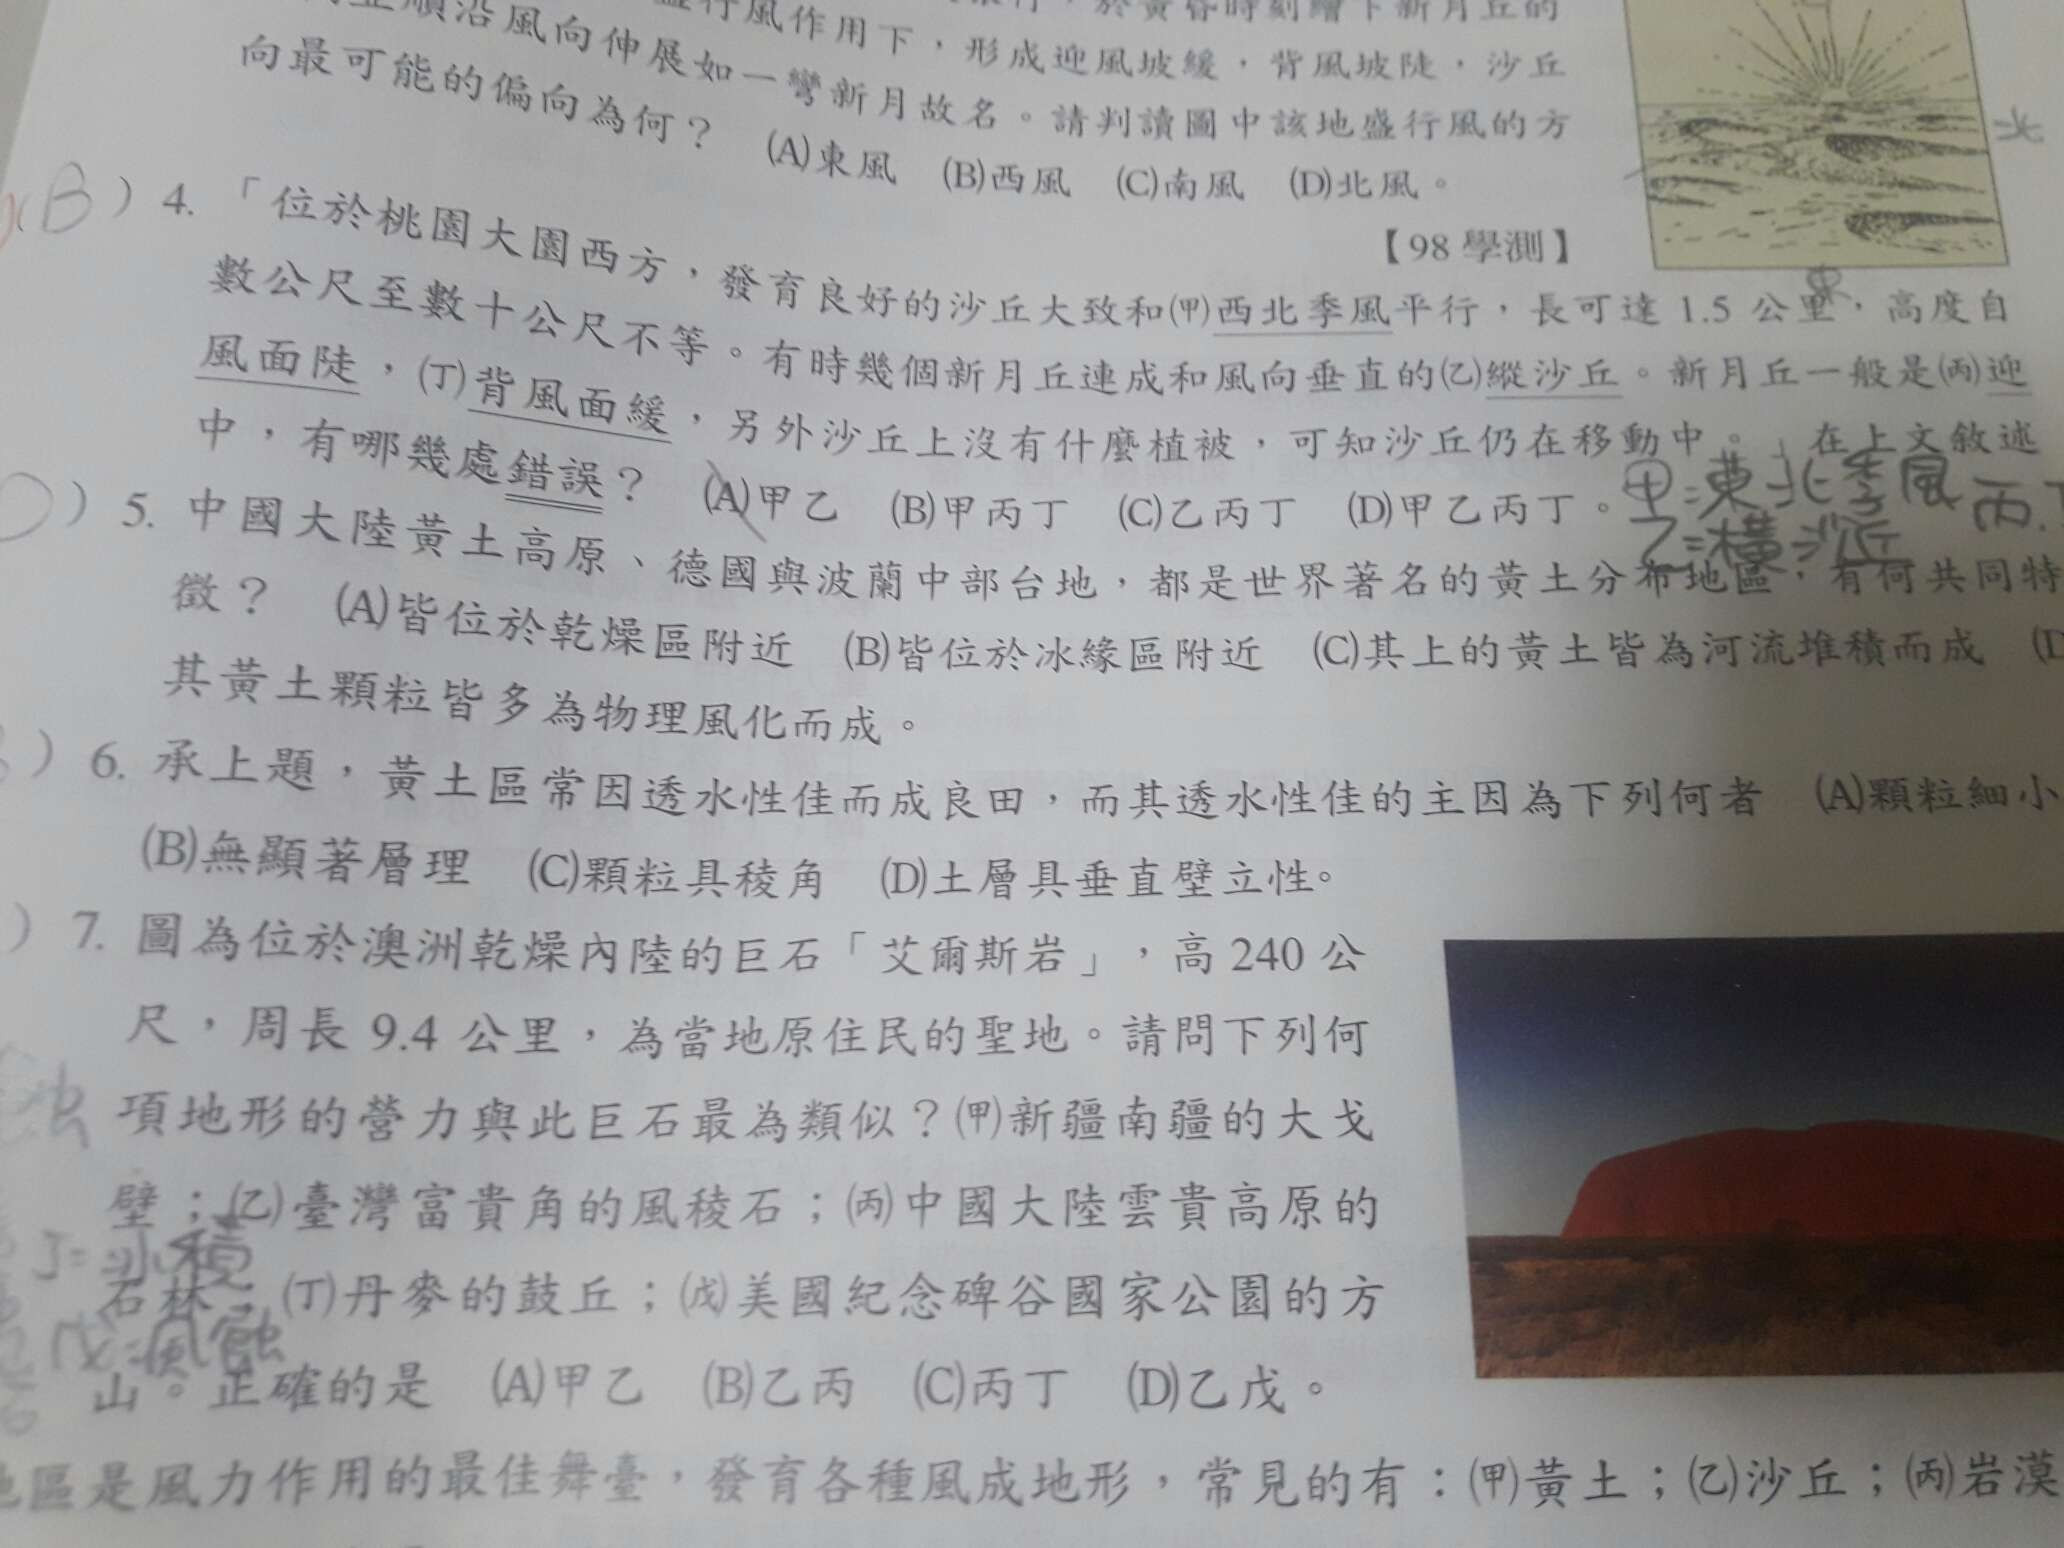 順沿風向伸展如一彎新月故名。請判讀圖中該地盛行風的方
盛行風作用下，形成迎風坡緩，背風坡陡，沙丘
向最可能的偏向為何？ (A)東風 (B)西風 (C)南風 (D)北風。
【98 學測】
北
東
(B) 4. 「位於桃園大園西方，發育良好的沙丘大致和(甲)西北季風平行，長可達 1.5 公里，高度自
數公尺至數十公尺不等。有時幾個新月丘連成和風向垂直的(乙)縱沙丘。新月丘一般是(丙)迎
風面陡，(丁)背風面緩，另外沙丘上沒有什麼植被，可知沙丘仍在移動中。」在上文敘述
中，有哪幾處錯誤？ (A)甲乙 (B)甲丙丁 (C)乙丙丁 (D)甲乙丙丁。
甲=東北季風 丙.
乙=橫沙丘
) 5. 中國大陸黃土高原、德國與波蘭中部台地，都是世界著名的黃土分布地區，有何共同特
徵？ (A)皆位於乾燥區附近 (B)皆位於冰緣區附近 (C)其上的黃土皆為河流堆積而成 (D
其黃土顆粒皆多為物理風化而成。
) 6. 承上題，黃土區常因透水性佳而成良田，而其透水性佳的主因為下列何者 (A)顆粒細小
(B)無顯著層理 (C)顆粒具稜角 (D)土層具垂直壁立性。
) 7. 圖為位於澳洲乾燥內陸的巨石「艾爾斯岩」，高 240 公
尺，周長 9.4 公里，為當地原住民的聖地。請問下列何
項地形的營力與此巨石最為類似？(甲)新疆南疆的大戈
壁；(乙)臺灣富貴角的風稜石；(丙)中國大陸雲貴高原的
石林；(丁)丹麥的鼓丘；(戊)美國紀念碑谷國家公園的方
山。正確的是 (A)甲乙 (B)乙丙 (C)丙丁 (D)乙戊。
蝕
丁=冰積
戊:風蝕
區是風力作用的最佳舞臺，發育各種風成地形，常見的有：(甲)黃土；(乙)沙丘；(丙)岩漠